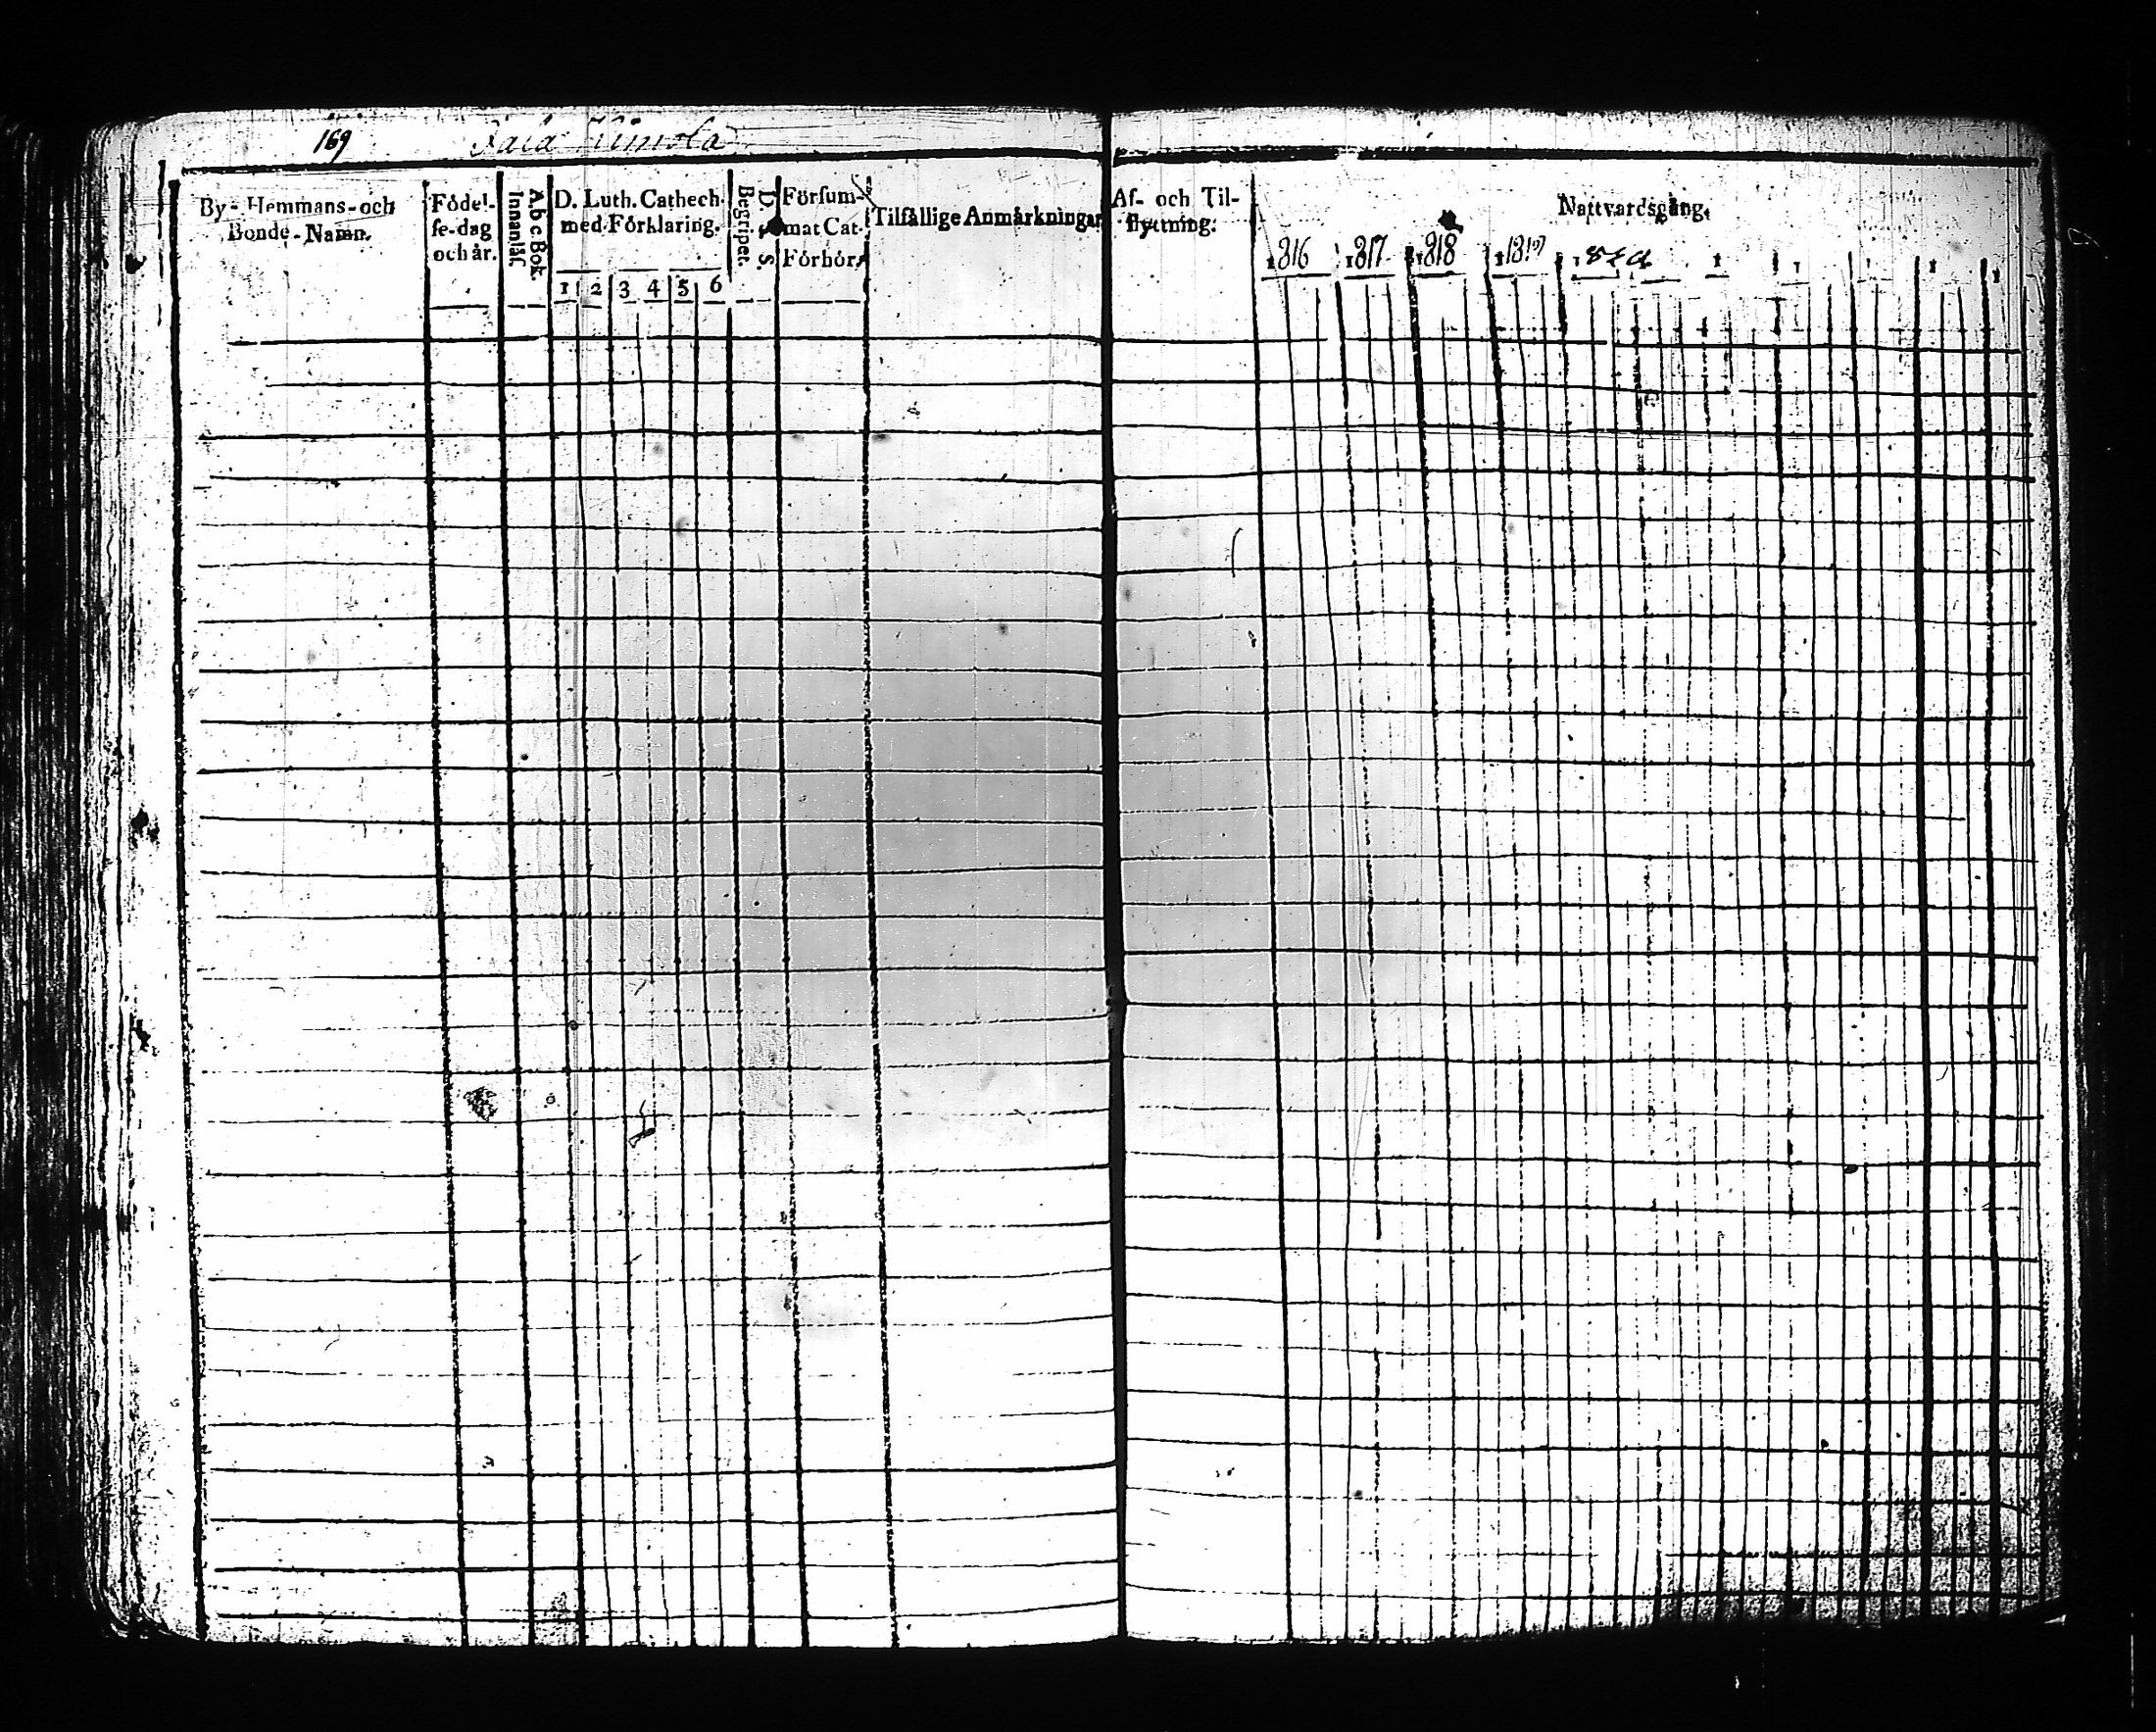 169 Sala Kimola
By- Hemmans- och
Bonde- Namn.
Födel-
se-dag
och år.
A b c Bok.
Innanläs.
D. Luth. Cathech.
med Förklaring.
1 2 3 4 5 6
D. S.
Begriper.
Försum-
mat Cat.
Förhör.
Tilfällige Anmärkningar
Af- och Til-
flyttning.
Nattvardsgång.
1816 1817 1818 1819 1820 1 1 1 1 1